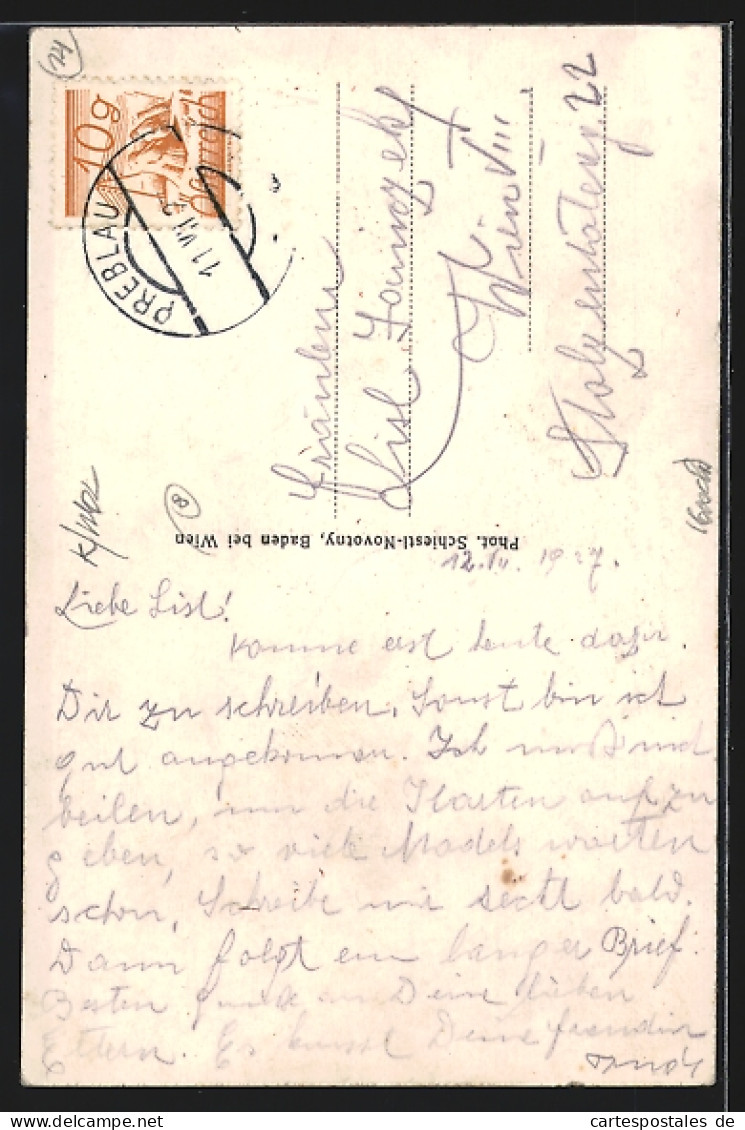 24
10g
Österreich
PREBLAU
11 VI
Fräulein
Lisl
Wien VIII
22
8
Phot. Schiestl-Novotny, Baden bei Wien
1927.
Liebe Lisl!
Komme erst heute dazu
Dir zu schreiben. Sonst bin ich
gut angekommen. Ich muß mich
beilen, um die Karten aufzu
geben, so viele Madels warten
schon. Schreibe mir recht bald.
Dann folgt ein langer Brief.
Besten an Deine lieben
Eltern. Es küsst Deine freundin
cartespostales de
www.cartespostales.de